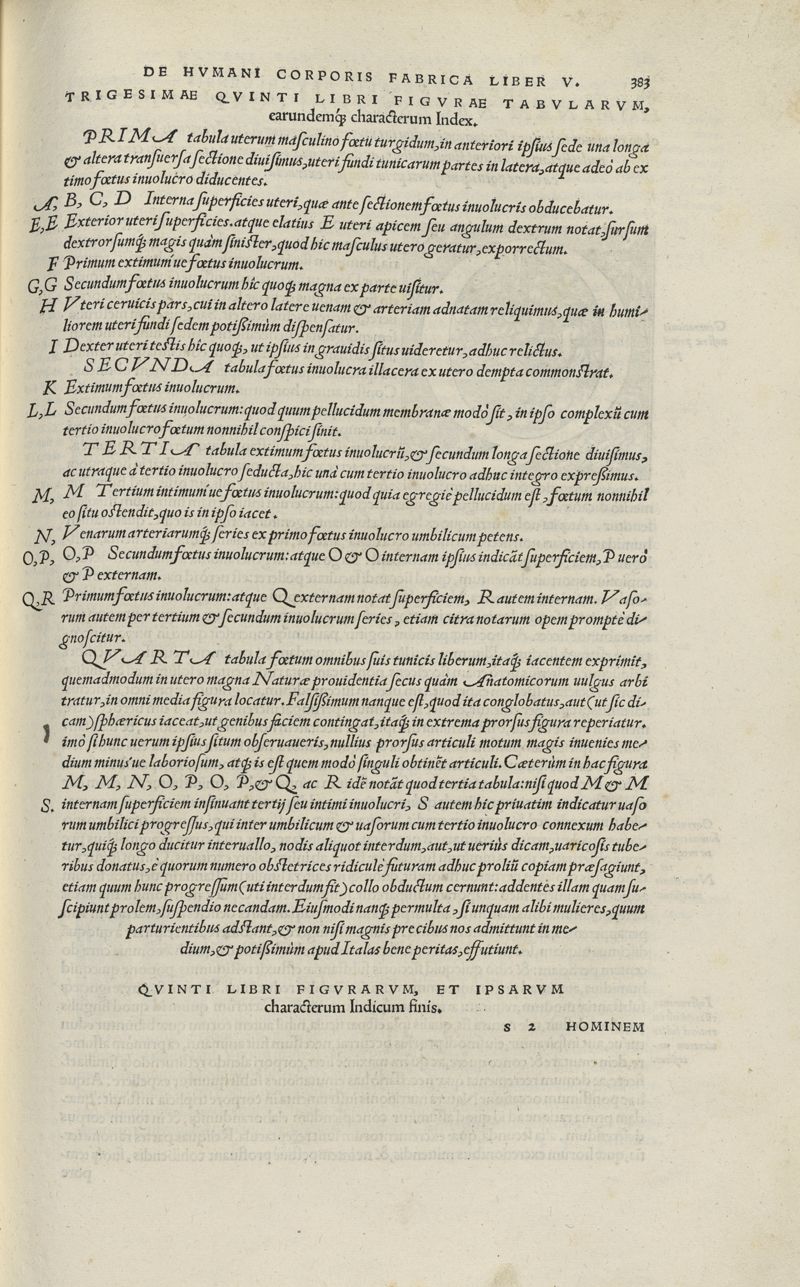 DE HVMANI CORPORIS FABRICA LIBER V. 383
TRIGESIMAE QVINTI LIBRI FIGVRAE TABVLARVM,
earundemq́; characterum Index.
PRIMA tabula uterum maſculino fœtu turgidum, in anteriori ipſius ſede una longa
& altera tranſuerſa ſectione diuiſimus, uteri fundi tunicarum partes in latera, atque adeò ab ex
timo fœtus inuolucro diducentes.
A, B, C, D Interna ſuperficies uteri, quæ ante ſectionem fœtus inuolucris obducebatur.
E,E Exterior uteri ſuperficies. atque elatius E uteri apicem ſeu angulum dextrum notat, ſurſum
dextrorſumq́; magis quàm ſiniſter, quod hic maſculus utero geratur, exporrectum.
F Primum extimum'ue fœtus inuolucrum.
G,G Secundum fœtus inuolucrum hîc quoq; magna ex parte uiſitur.
H Vteri ceruicis pars, cui in altero latere uenam & arteriam adnatam reliquimus, quæ in humi-
liorem uteri fundi ſedem potißimùm diſpenſatur.
I Dexter uteri teſtis hîc quoq;, ut ipſius in grauidis ſitus uideretur, adhuc relictus.
SECVNDA tabula fœtus inuolucra illacera ex utero dempta commonſtrat.
K Extimum fœtus inuolucrum.
L,L Secundum fœtus inuolucrum: quod quum pellucidum membranæ modò ſit, in ipſo complexũ cum
tertio inuolucro fœtum nonnihil conſpici ſinit.
TERTIA tabula extimum fœtus inuolucrũ, & ſecundum longa ſectione diuiſimus,
ac utraque à tertio inuolucro ſeducta, hîc unà cum tertio inuolucro adhuc integro expreßimus.
M, M Tertium intimum'ue fœtus inuolucrum: quod quia egregiè pellucidum eſt, fœtum nonnihil
eo ſitu oſtendit, quo is in ipſo iacet.
N, Venarum arteriarumq́; ſeries ex primo fœtus inuolucro umbilicum petens.
O,P, O,P Secundum fœtus inuolucrum: atque O & O internam ipſius indicãt ſuperficiem, P uerò
& P externam.
Q,R Primum fœtus inuolucrum: atque Q externam notat ſuperficiem, R autem internam. Vaſo-
rum autem per tertium & ſecundum inuolucrum ſeries, etiam citra notarum opem promptè di-
gnoſcitur.
QVARTA tabula fœtum omnibus ſuis tunicis liberum, itaq́; iacentem exprimit,
quemadmodum in utero magna Naturæ prouidentia ſecus quàm Anatomicorum uulgus arbi
tratur, in omni media figura locatur. Falſißimum nanque eſt, quod ita conglobatus, aut (ut ſic di-
cam) ſphæricus iaceat, ut genibus faciem contingat, itaq́; in extrema prorſus figura reperiatur.
imò ſi hunc uerum ipſius ſitum obſeruaueris, nullius prorſus articuli motum magis inuenies me-
dium minus'ue laborioſum, atq; is eſt quem modò ſinguli obtinẽt articuli. Cæterùm in hac figura
M, M, N, O, P, O, P, & Q, ac R idẽ notãt quod tertia tabula: niſi quod M & M
S. internam ſuperficiem inſinuant tertij ſeu intimi inuolucri, S autem hîc priuatim indicatur uaſo
rum umbilici progreſſus, qui inter umbilicum & uaſorum cum tertio inuolucro connexum habe-
tur, quiq́; longo ducitur interuallo, nodis aliquot interdum, aut, ut uerius dicam, uaricoſis tube-
ribus donatus, è quorum numero obſtetrices ridiculè futuram adhuc proliũ copiam præſagiunt,
etiam quum hunc progreſſum (uti interdum fit) collo obductum cernunt: addentes illam quam ſu-
ſcipiunt prolem, ſuſpendio necandam. Eiuſmodi nanq; permulta, ſi unquam alibi mulieres, quum
parturientibus adſtant, & non niſi magnis precibus nos admittunt in me-
dium, & potißimùm apud Italas bene peritas, effutiunt.
QVINTI LIBRI FIGVRARVM, ET IPSARVM
characterum Indicum finis.
s 2 HOMINEM